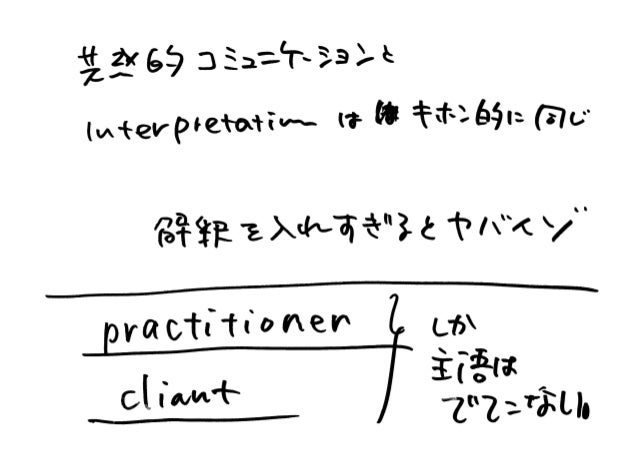 共感的コミュニケーションと
Interpretationは キホン的に同じ
解釈を入れすぎるとヤバイゾ
practitioner
cliant
しか
主語は
でてこない。